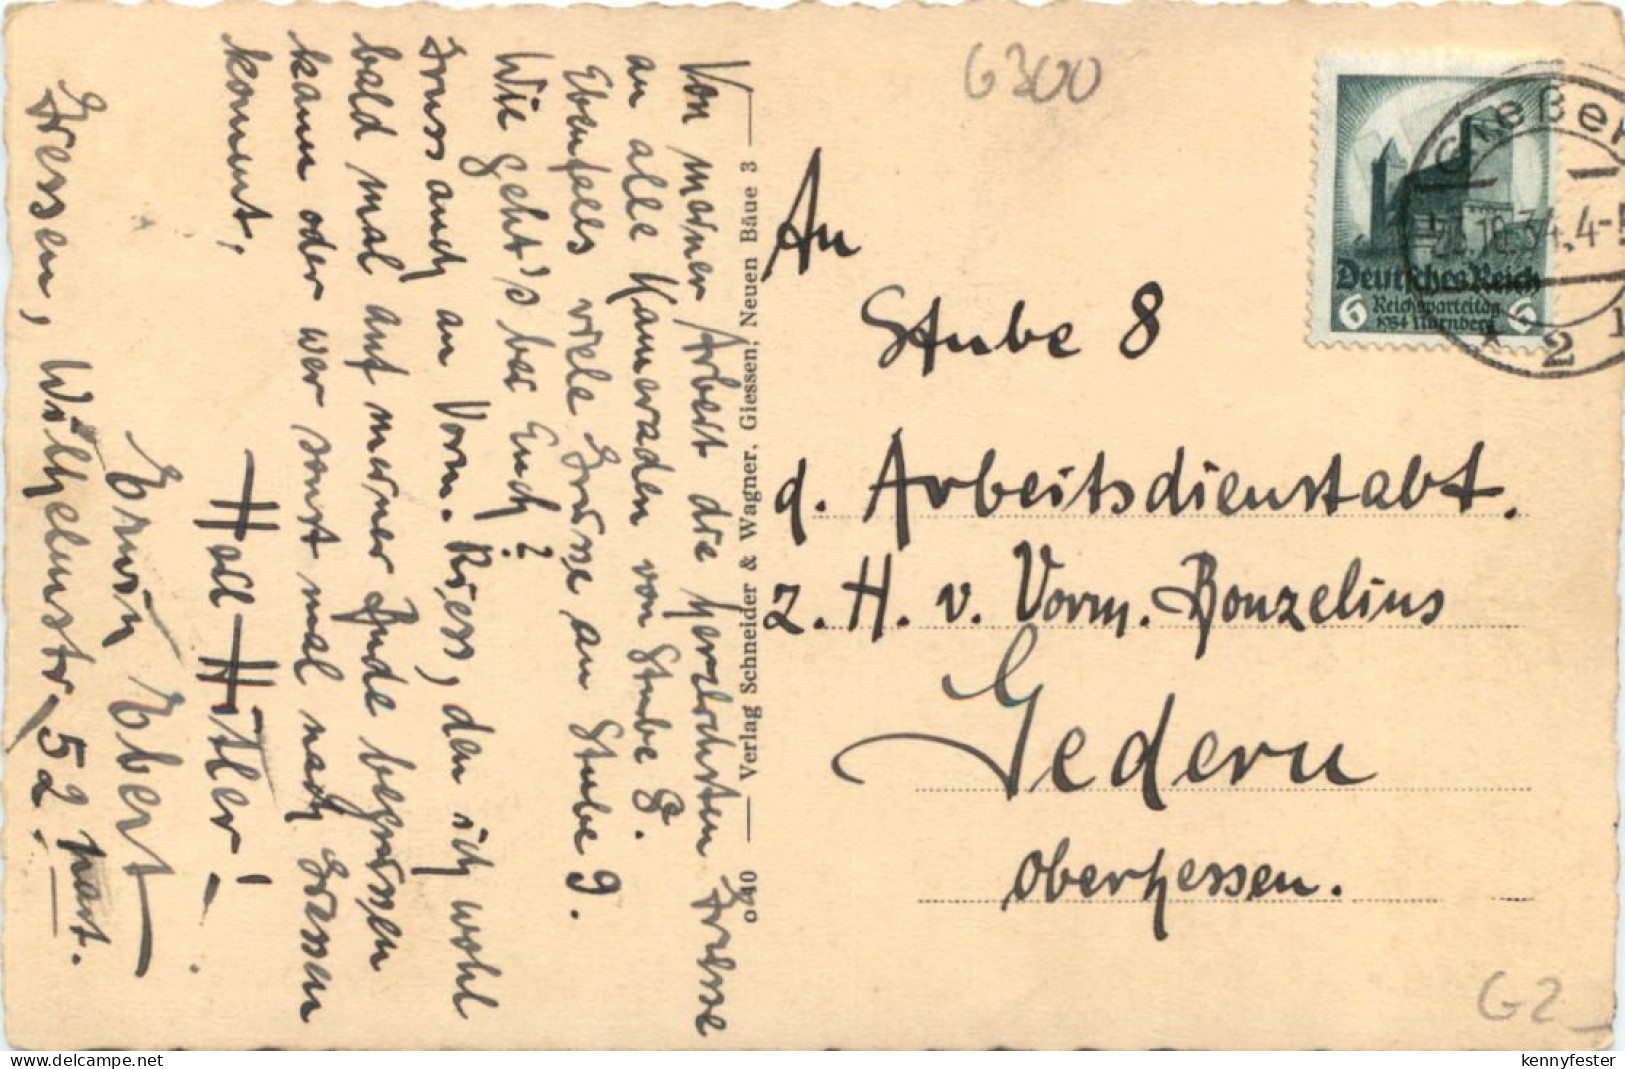 Von meiner Arbeit die herzlichsten Grüsse
an alle Kameraden von Stube 8.
Ebenfalls viele Grüsse an Stube 9.
Wie geht's bei Euch?
Gruss auch an Vorm. Riess, den ich wohl
bald mal auf meiner Bude begrüssen
kann oder wer sonst mal nach Giessen
kommt.
Heil-Hitler!
Erwin Ebert
Giessen, Wilhelmstr. 52 part.
o 40 — Verlag Schneider & Wagner, Giessen, Neuen Bäue 3 —
G300
An
Stube 8
d. Arbeitsdienstabt.
z. H. v. Vorm. Bonzelius
Gedern
Oberhessen.
Deutsches Reich
Reichsparteitag
1934 Nürnberg
6 6
Gießen
1
10.34.4-5
* 2
G2
kennyfester